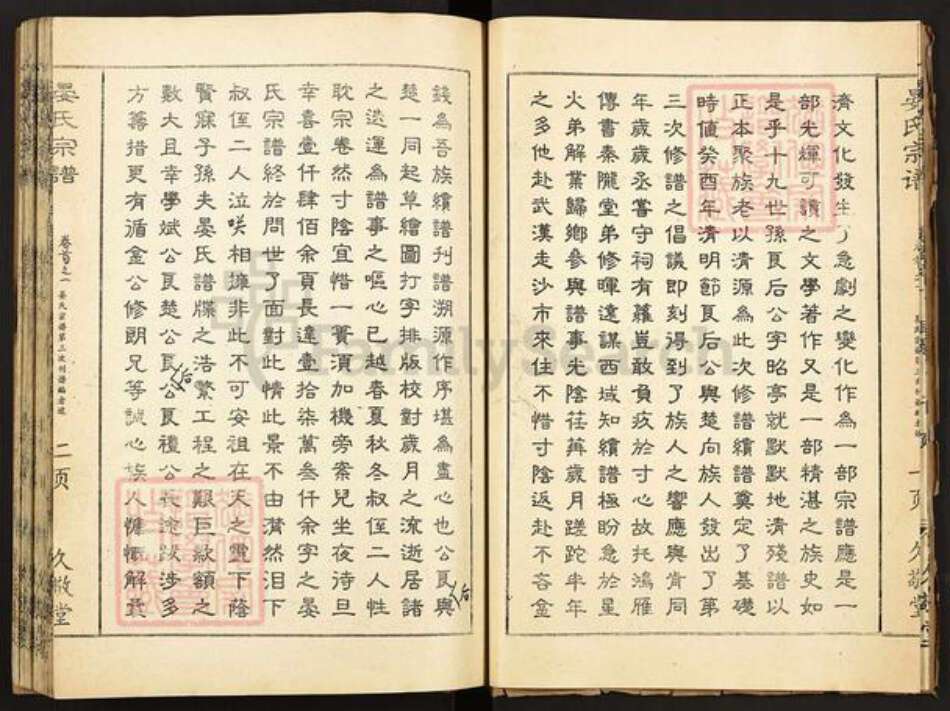 濟文化發生了急劇之變化作為一部宗譜應是一
部光輝可讀之文學著作又是一部精湛之族史如
是乎十九世孫艮后公字昭亭就默默地清殘譜以
正本聚族老以清源為此次修譜續譜奠定了基礎
時值癸酉年清明節艮后公與楚向族人發出了第
三次修譜之倡議即刻得到了族人之響應與肯同
年歲歲丞嘗守祠有蘿豈敢負疚於寸心故托鴻雁
傳書秦隴堂弟修暉遠謀西域知續譜極盼急於星
火弟解業歸鄉參與譜事光陰荏苒歲月蹉跎半年
之多他赴武漢走沙市來往不惜寸陰返赴不吝金
晏氏宗譜
一頁
久敬堂
錢為吾族續譜刊譜溯源作序堪為盡心也公艮與
后
楚一同起草繪圖打字排版校對歲月之流逝居諸
之迭運為譜事之嘔心已越春夏秋冬叔侄二人性
耽宗卷然寸陰宜惜一簣湏加機旁案兒坐夜待旦
幸喜壹仟肆佰余頁長達壹拾柒萬叁仟余字之晏
氏宗譜終於問世了面對此情此景不由潸然泪下
叔侄二人泣咲相擁非此不可安祖在天之靈下蔭
賢寐子孫夫晏氏譜牒之浩繁工程之艱巨款額之
數大且幸學斌公艮楚公艮禮公長途跋涉多
后
方籌措更有循金公修朗兄等誠心族人慷慨解囊
晏氏宗譜
卷首之一
晏氏宗譜第三次刊譜編者述
二页
久敬堂
FamilySearch